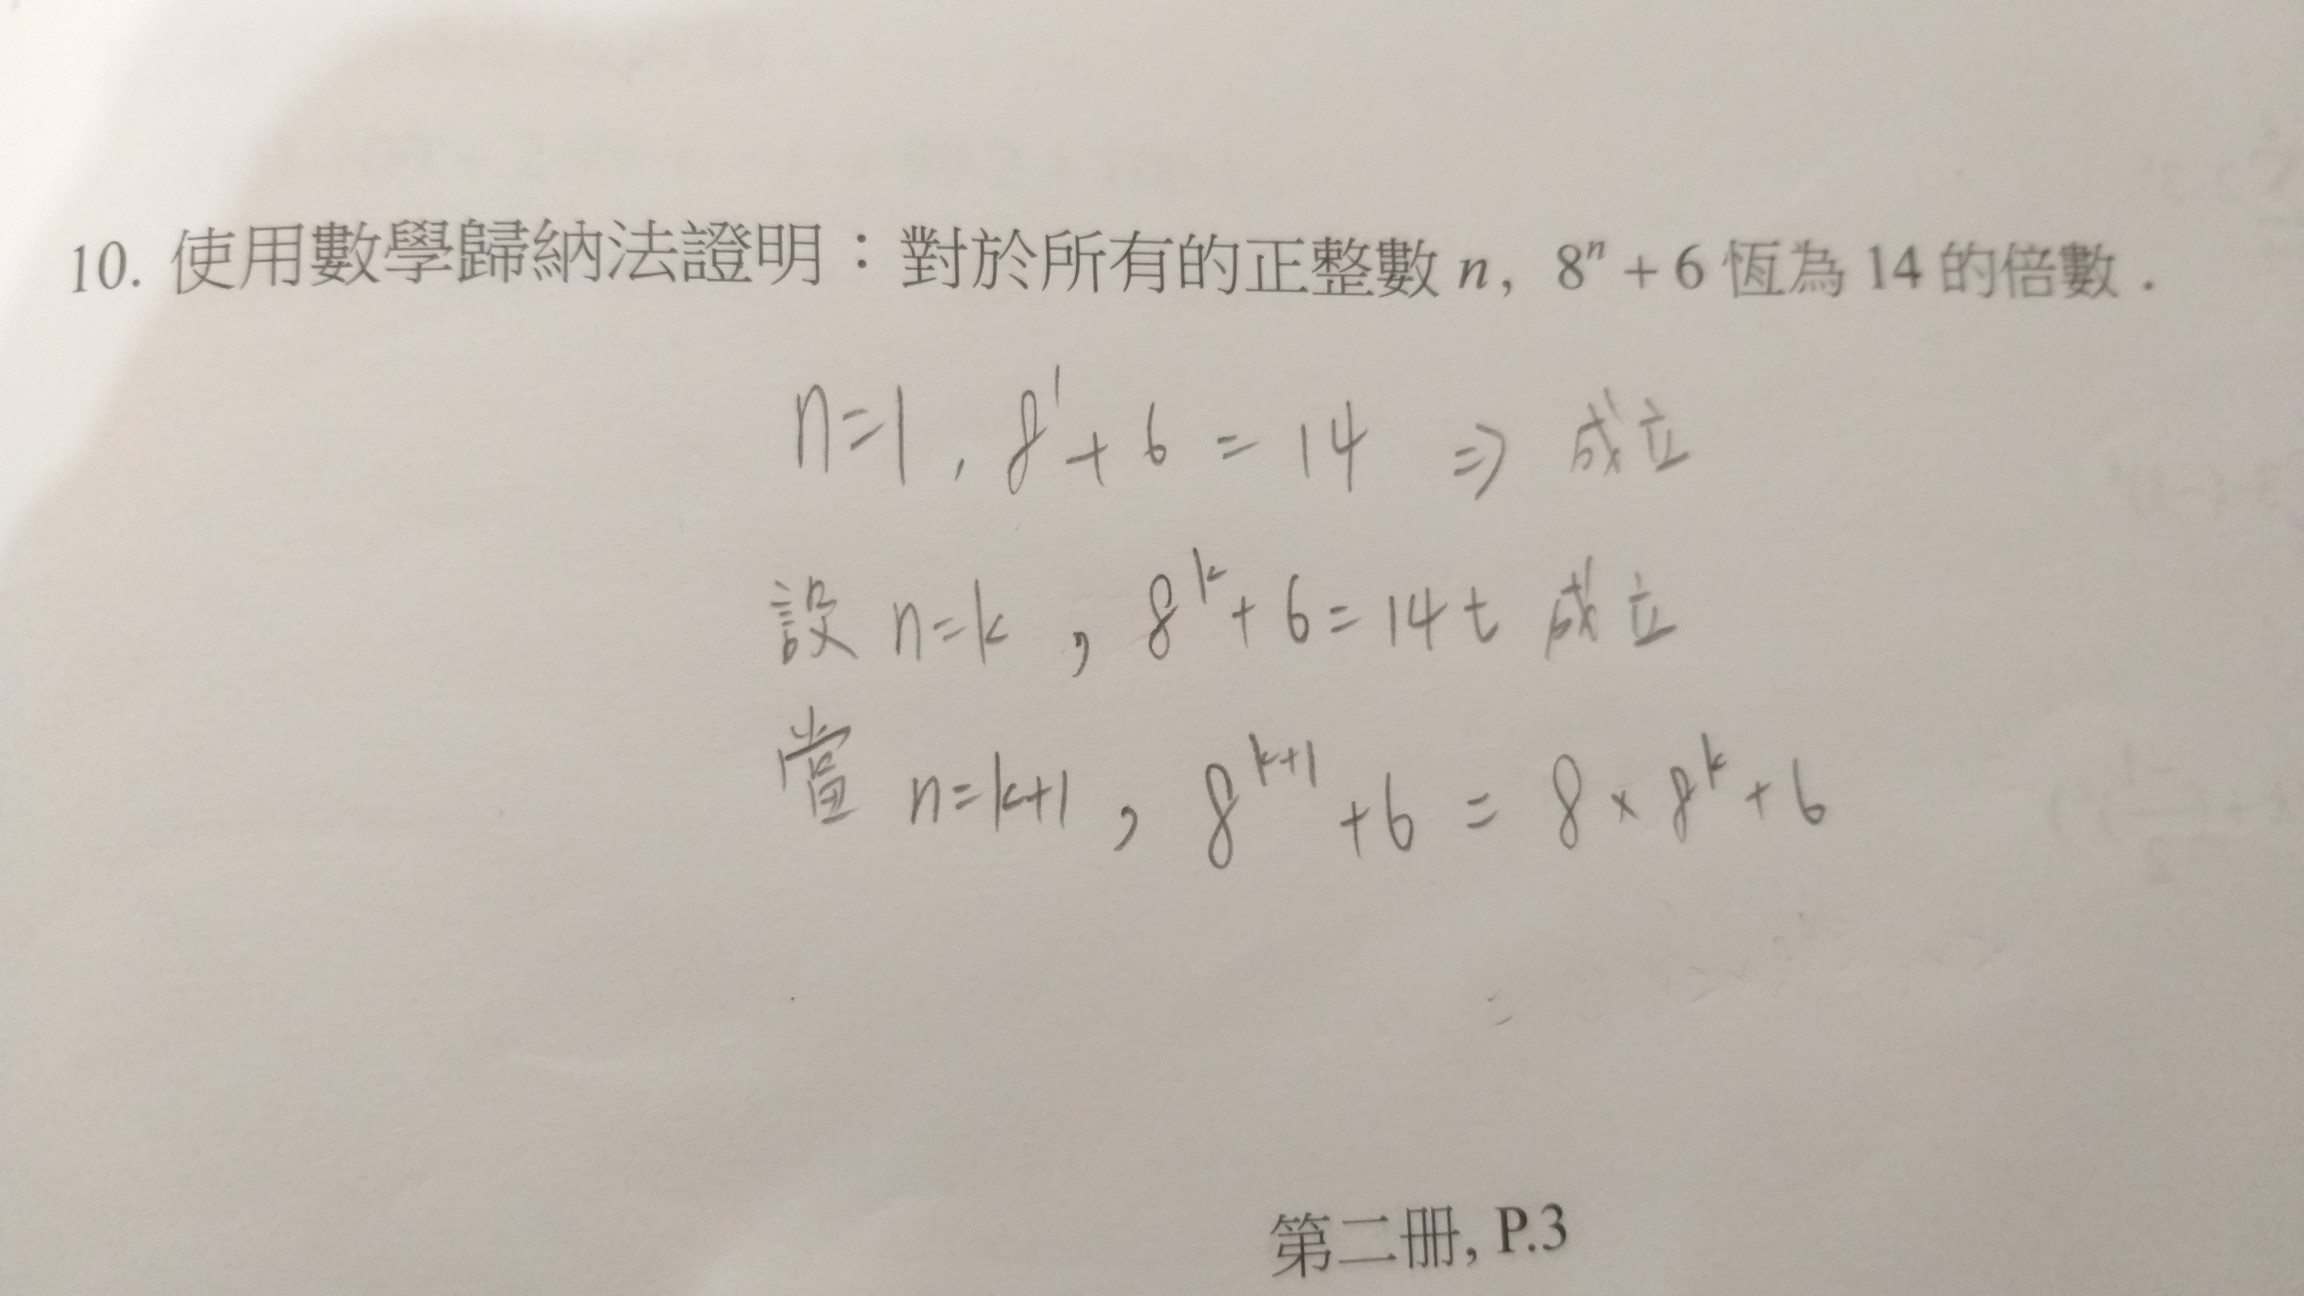 10. 使用數學歸納法證明：對於所有的正整數 n, 8ⁿ + 6 恆為 14 的倍數．
n=1, 8¹+6 = 14 ⇒ 成立
設 n=k, 8ᵏ+6=14t 成立
當 n=k+1, 8ᵏ⁺¹+6 = 8×8ᵏ+6
=
第二冊, P.3